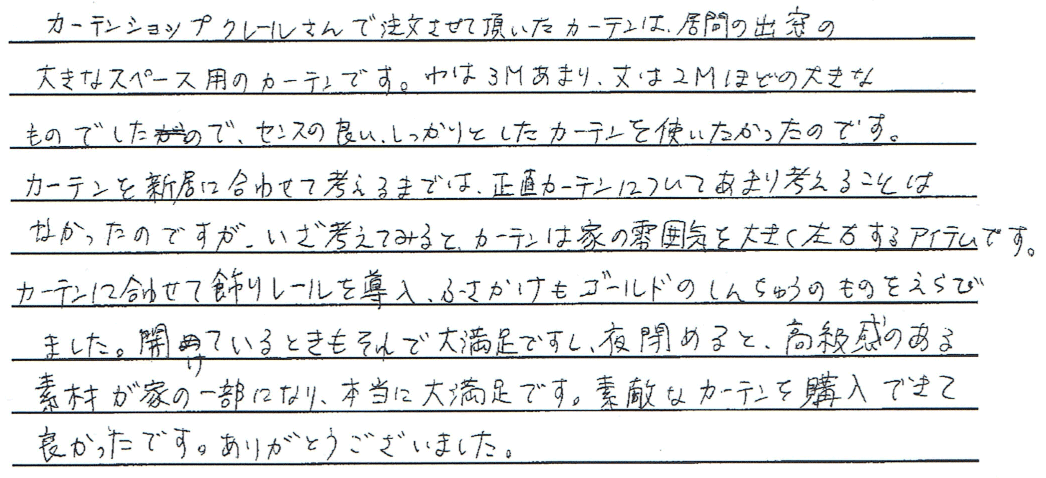 カーテンショップクレールさんで注文させて頂いたカーテンは、居間の出窓の
大きなスペース用のカーテンです。巾は3Mあまり、丈は2Mほどの大きな
ものでしたので、センスの良い、しっかりとしたカーテンを使いたかったのです。
カーテンを新居に合わせて考えるまでは、正直カーテンについてあまり考えることは
なかったのですが、いざ考えてみると、カーテンは家の雰囲気を大きく左右するアイテムです。
カーテンに合わせて飾りレールを導入、ふさかけもゴールドのしんちゅうのものをえらび
ました。開けているときもそれで大満足ですし、夜閉めると、高級感のある
素材が家の一部になり、本当に大満足です。素敵なカーテンを購入できて
良かったです。ありがとうございました。